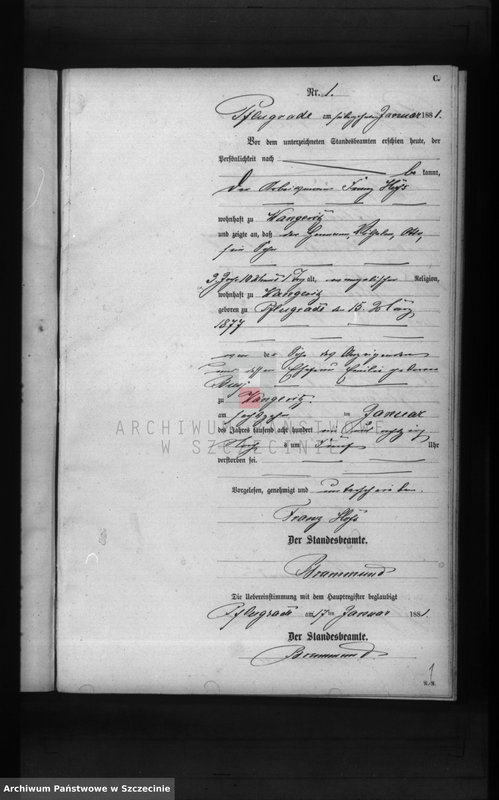 C.
Nr. 1.
Pflugrade am siebzehnten Januar 1881.
Vor dem unterzeichneten Standesbeamten erschien heute, der
Persönlichkeit nach
be kannt,
der Arbeitsmann Franz
wohnhaft zu Wangeritz
und zeigte an, daß der Hermann, Wilhelm, Otto,
sein Sohn
3 Jahr 10 Monat 1 Tag alt, evangelischer Religion,
wohnhaft zu Wangeritz
geboren zu Pflugrade den 15. März
1877
der Sohn des Anzeigenden
und dessen Ehefrau Emilie geborene
zu Wangeritz
am sechszehn ten Januar
des Jahres tausend acht hundert ein und achtzig
um fünf Uhr
verstorben sei.
Vorgelesen, genehmigt und unterschrieben.
Franz
Der Standesbeamte.
Die Uebereinstimmung mit dem Hauptregister beglaubigt
Pflugrade am 17ten Januar 1881.
Der Standesbeamte.
1
ARCHIWUM PAŃSTWOWE
W SZCZECINIE
Archiwum Państwowe w Szczecinie